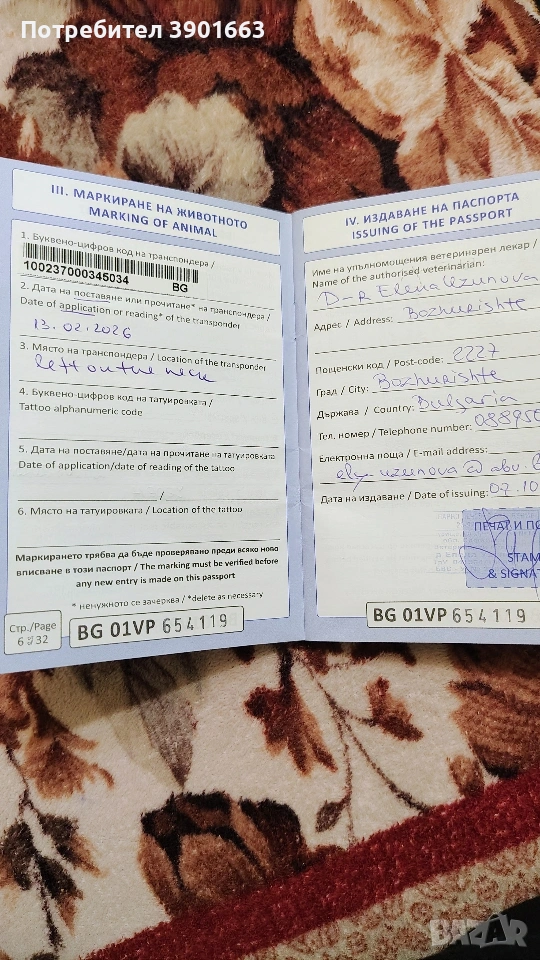 Потребител 3901663
III. МАРКИРАНЕ НА ЖИВОТНОТО
MARKING OF ANIMAL
1. Буквено-цифров код на транспондера /
100237000345034 BG
2. Дата на поставяне или прочитане* на транспондера /
Date of application or reading* of the transponder
13.02.2026
3. Място на транспондера / Location of the transponder
left on the neck
4. Буквено-цифров код на татуировката /
Tattoo alphanumeric code
5. Дата на поставяне/дата на прочитане на татуировката
Date of application/date of reading of the tattoo
/
6. Място на татуировката / Location of the tattoo
Маркирането трябва да бъде проверявано преди всяко ново
вписване в този паспорт / The marking must be verified before
any new entry is made on this passport
* ненужното се зачерква / *delete as necessary
Стр./Page
6 32
BG 01VP 654119
IV. ИЗДАВАНЕ НА ПАСПОРТА
ISSUING OF THE PASSPORT
Име на упълномощения ветеринарен лекар /
Name of the authorised veterinarian:
D-R Elena Uzunova
Адрес / Address: Bozhurishte
Пощенски код / Post-code: 2227
Град / City: Bozhurishte
Държава / Country: Bulgaria
Тел. номер / Telephone number: 088950
Електронна поща / E-mail address:
ely_uzunova@abv.
Дата на издаване / Date of issuing: 07.10
ПЕЧАТ И ПО
STAM
& SIGNAT
BG 01VP 654119
BAZAR